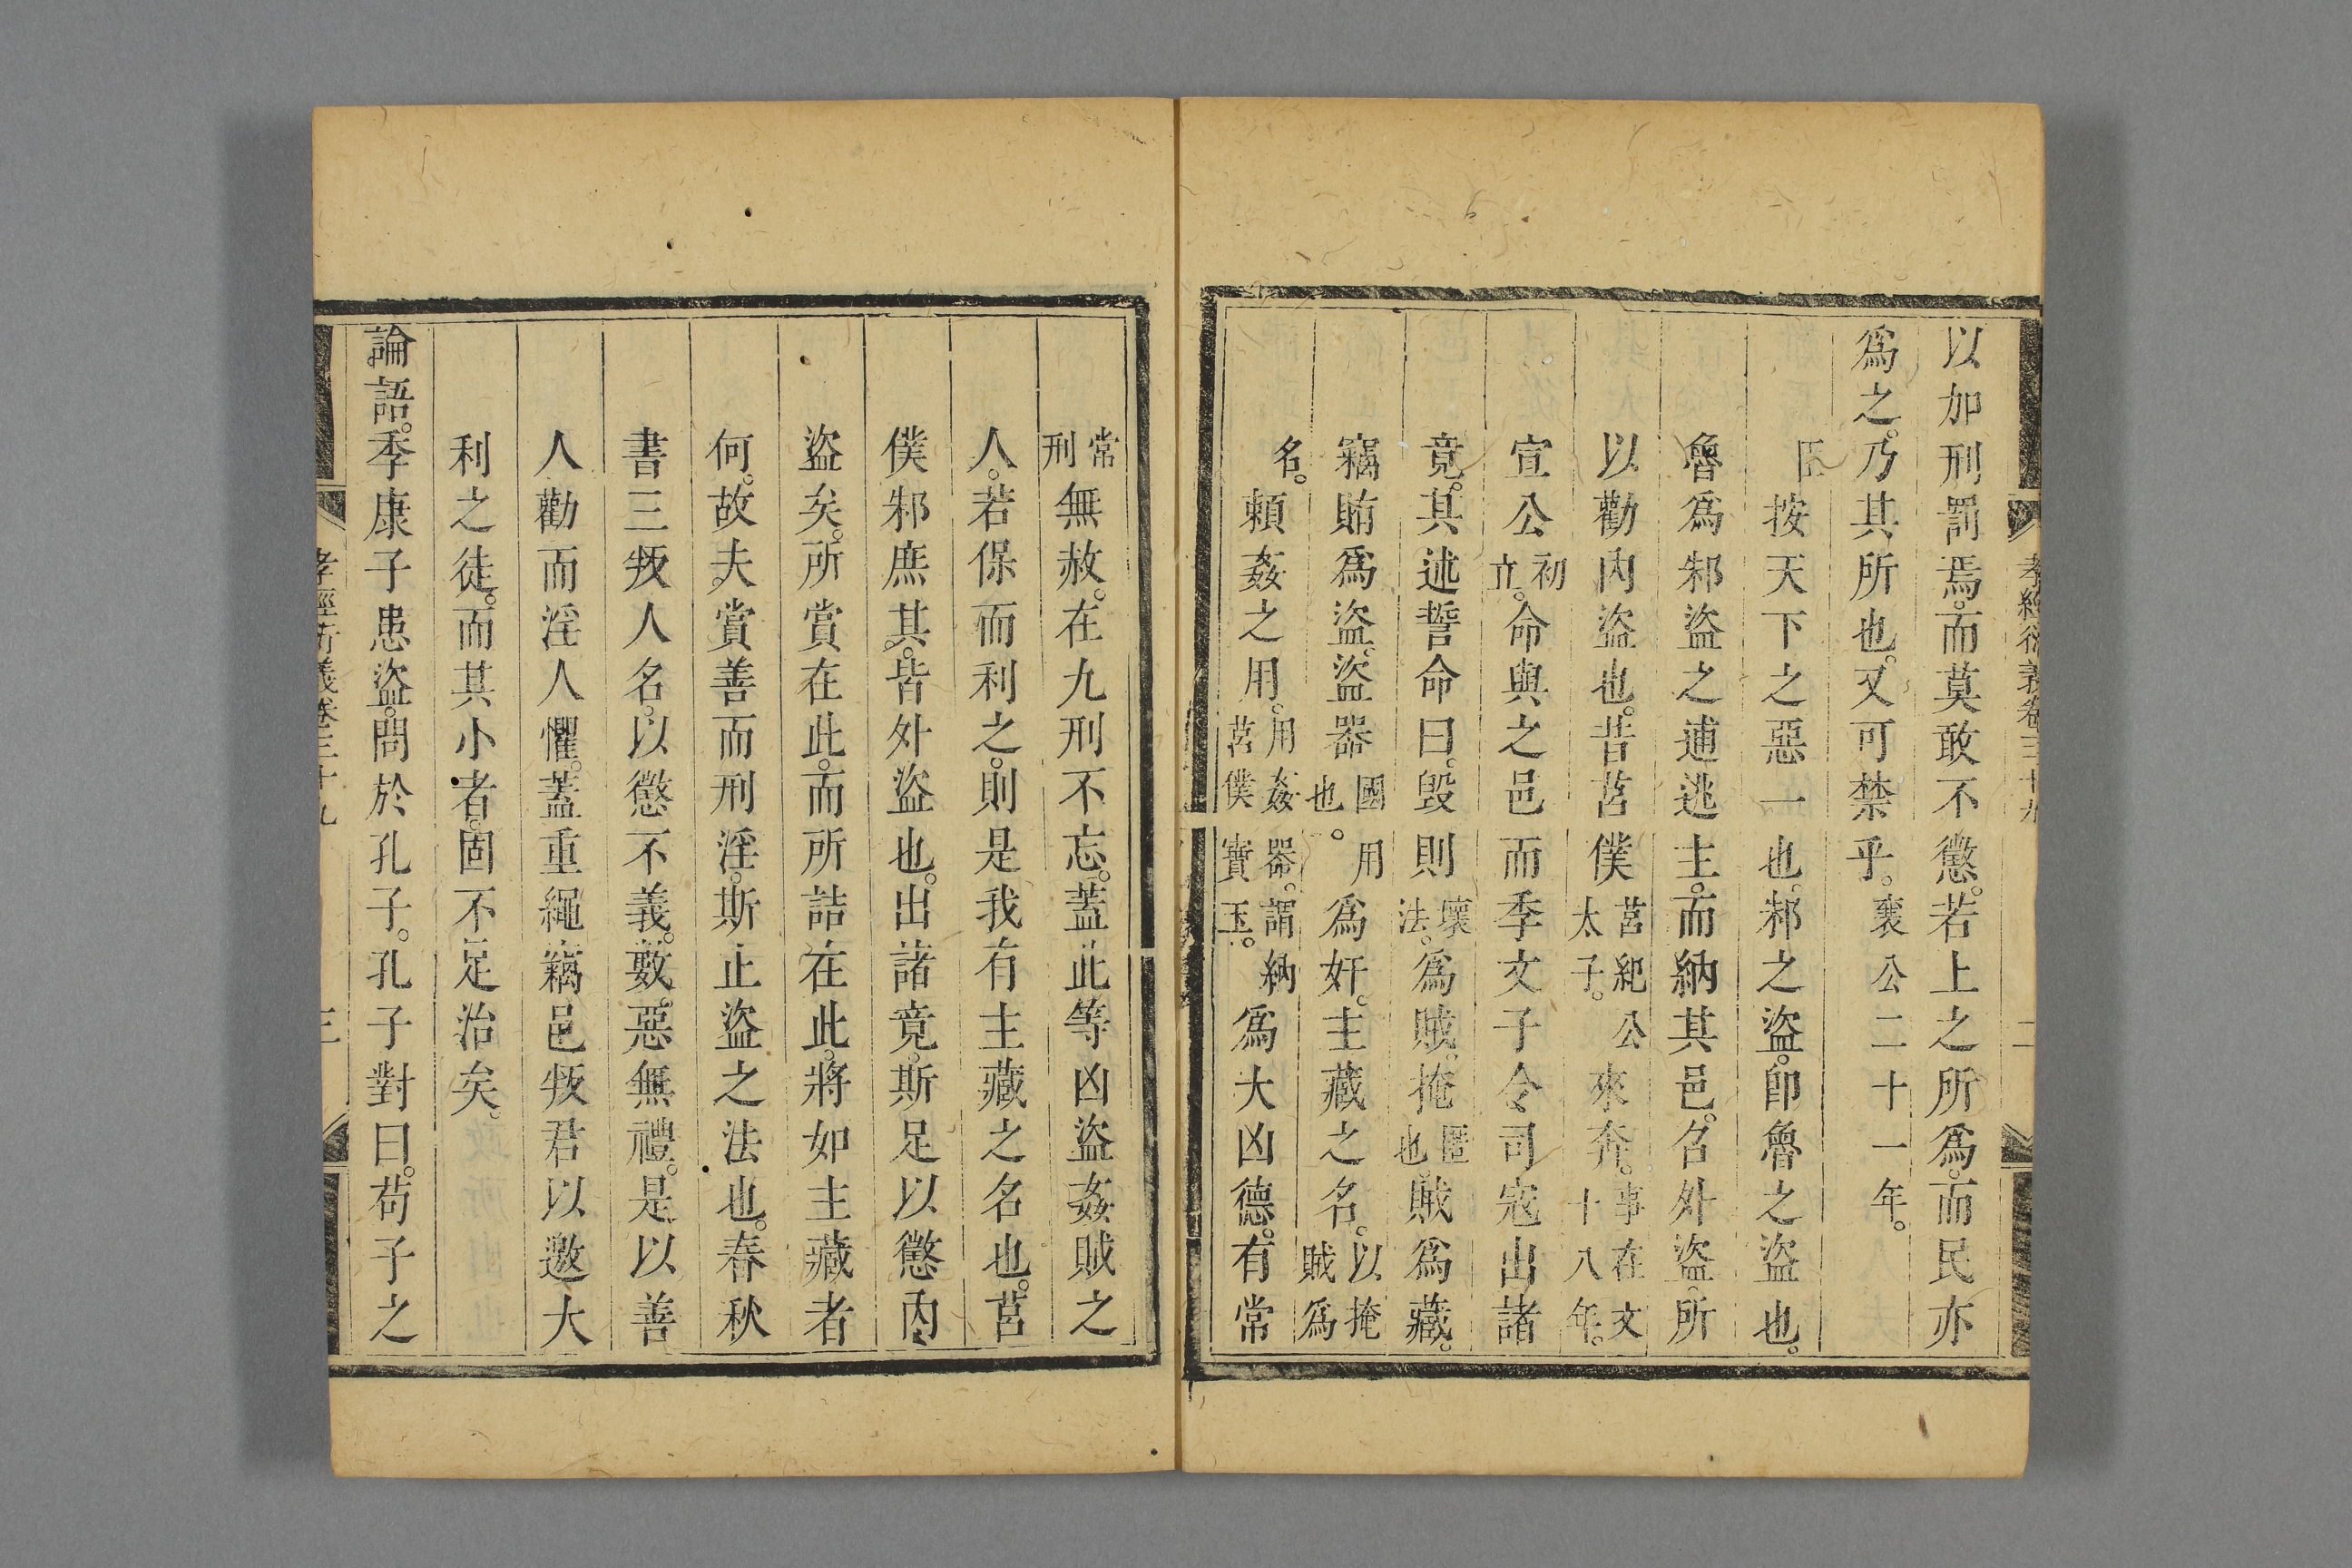 孝經衍義卷三十九　二
以加刑罰焉。而莫敢不懲。若上之所爲。而民亦
爲之。乃其所也。又可禁乎。襄公二十一年。
臣按天下之惡一也。邾之盜。卽魯之盜也。
魯爲邾盜之逋逃主。而納其邑。召外盜。所
以勸內盜也。昔莒僕莒紀公太子。來奔。事在文十八年。
宣公初立。命與之邑。而季文子令司寇出諸
竟。其述誓命曰。毀則壞法。爲賊。掩匿也。賊爲藏。
竊賄爲盜。盜器國用也。爲奸。主藏之名。以掩賊爲
名。賴姦之用。用姦器。謂納莒僕寶玉。爲大凶德。有常
常刑無赦。在九刑不忘。蓋此等凶盜姦賊之
人。若保而利之。則是我有主藏之名也。莒
僕邾庶其。皆外盜也。出諸竟。斯足以懲內
盜矣。所賞在此。而所詰在此。將如主藏者
何。故夫賞善而刑淫。斯止盜之法也。春秋
書三叛人名。以懲不義。數惡無禮。是以善
人勸而淫人懼。蓋重繩竊邑叛君以邀大
利之徒。而其小者。固不足治矣。
論語。季康子患盜。問於孔子。孔子對曰。苟子之
孝經衍義卷三十九　三